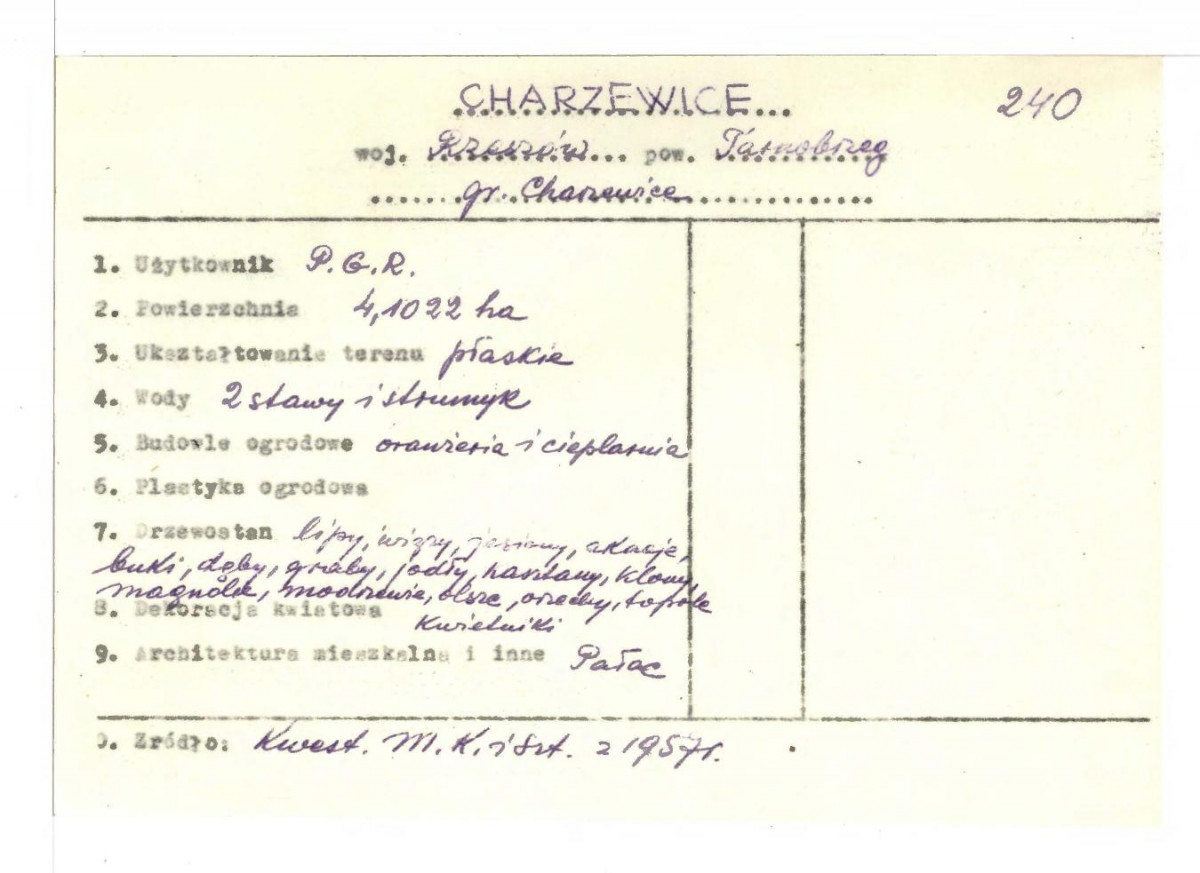 CHARZEWICE...
240
woj. Rzeszów... pow. Tarnobrzeg
gr. Charzewice
1. Użytkownik P.G.R.
2. Powierzchnia 4,1022 ha
3. Ukształtowanie terenu płaskie
4. Wody 2 stawy i strumyk
5. Budowle ogrodowe oranżeria i cieplarnia
6. Plastyka ogrodowa
7. Drzewostan lipy, wiązy, jesiony, akacje,
buki, dęby, graby, jodły, kasztany, klony,
magnolie, modrzewie, olsze, orzechy, topole
8. Dekoracja kwiatowa kwietniki
9. Architektura mieszkalna i inne Pałac
0. Źródło: Kwest. M.K. i Szt. z 1957r.